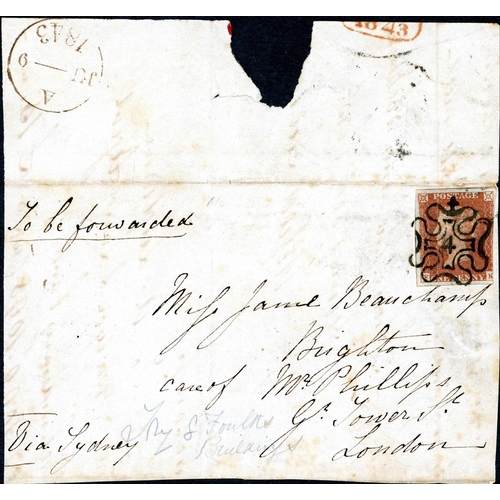 1843
JU 9
A
1843
POSTAGE
4
To be forwarded
Miss Jane Beauchamp
Brighton
care of Mr Phillips
Gt Tower St
London
Via Sydney
Try 8 Foulks
Buildings